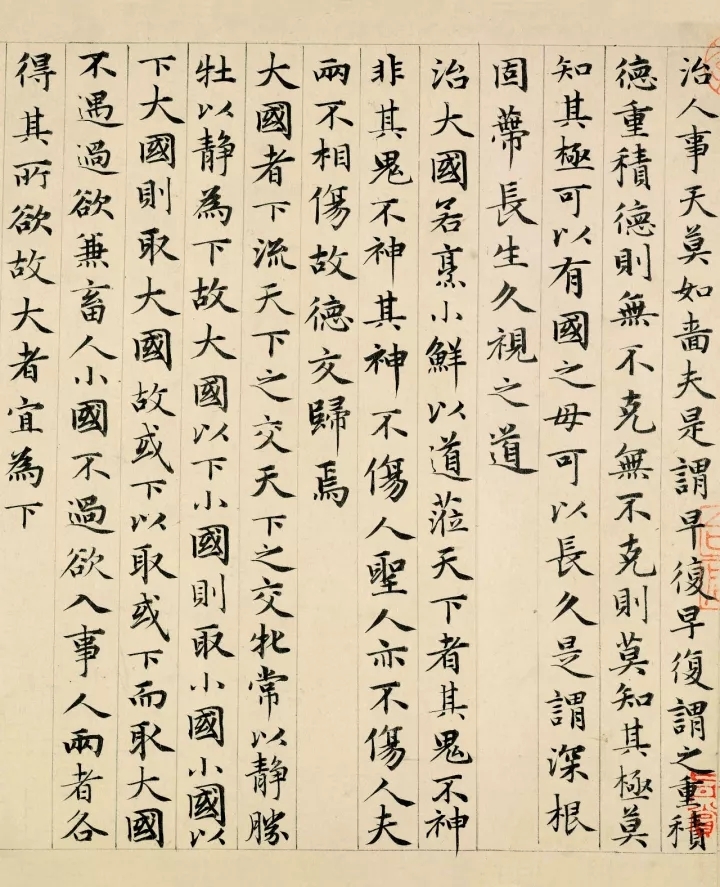 治人事天莫如嗇夫是謂早復早復謂之重積
德重積德則無不克無不克則莫知其極莫
知其極可以有國之母可以長久是謂深根
固蔕長生久視之道
治大國若烹小鮮以道蒞天下者其鬼不神
非其鬼不神其神不傷人聖人亦不傷人夫
兩不相傷故德交歸焉
大國者下流天下之交天下之交牝常以静勝
牡以静為下故大國以下小國則取小國小國以
下大國則取大國故或下以取或下而取大國
不過過欲兼畜人小國不過欲入事人兩者各
得其所欲故大者宜為下